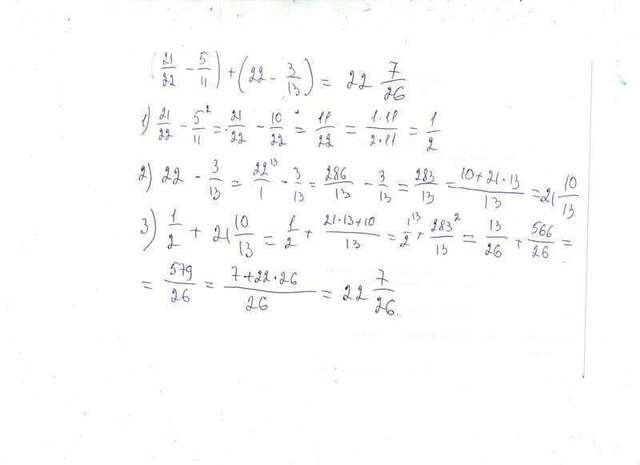 (21/22 - 5/11) + (22 - 3/13) = 22 7/26
1) 21/22 - 5/11 ² = 21/22 - 10/22 = 11/22 = 1·11/2·11 = 1/2
2) 22 - 3/13 = 22/1 ¹³ - 3/13 = 286/13 - 3/13 = 283/13 = 10+21·13/13 = 21 10/13
3) 1/2 + 21 10/13 = 1/2 + 21·13+10/13 = 1/2 ¹³ + 283/13 ² = 13/26 + 566/26 =
= 579/26 = 7+22·26/26 = 22 7/26.